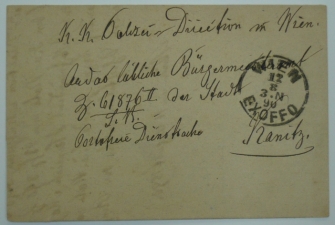 K. K. Polizei-Direction in Wien.
An das löbliche Bürgermeisteramt
Z. 61876 II der Stadt
S. B.
Portofreie Dienstsache Kanitz.
WIEN
12
8
3.N
90
EXOFFO